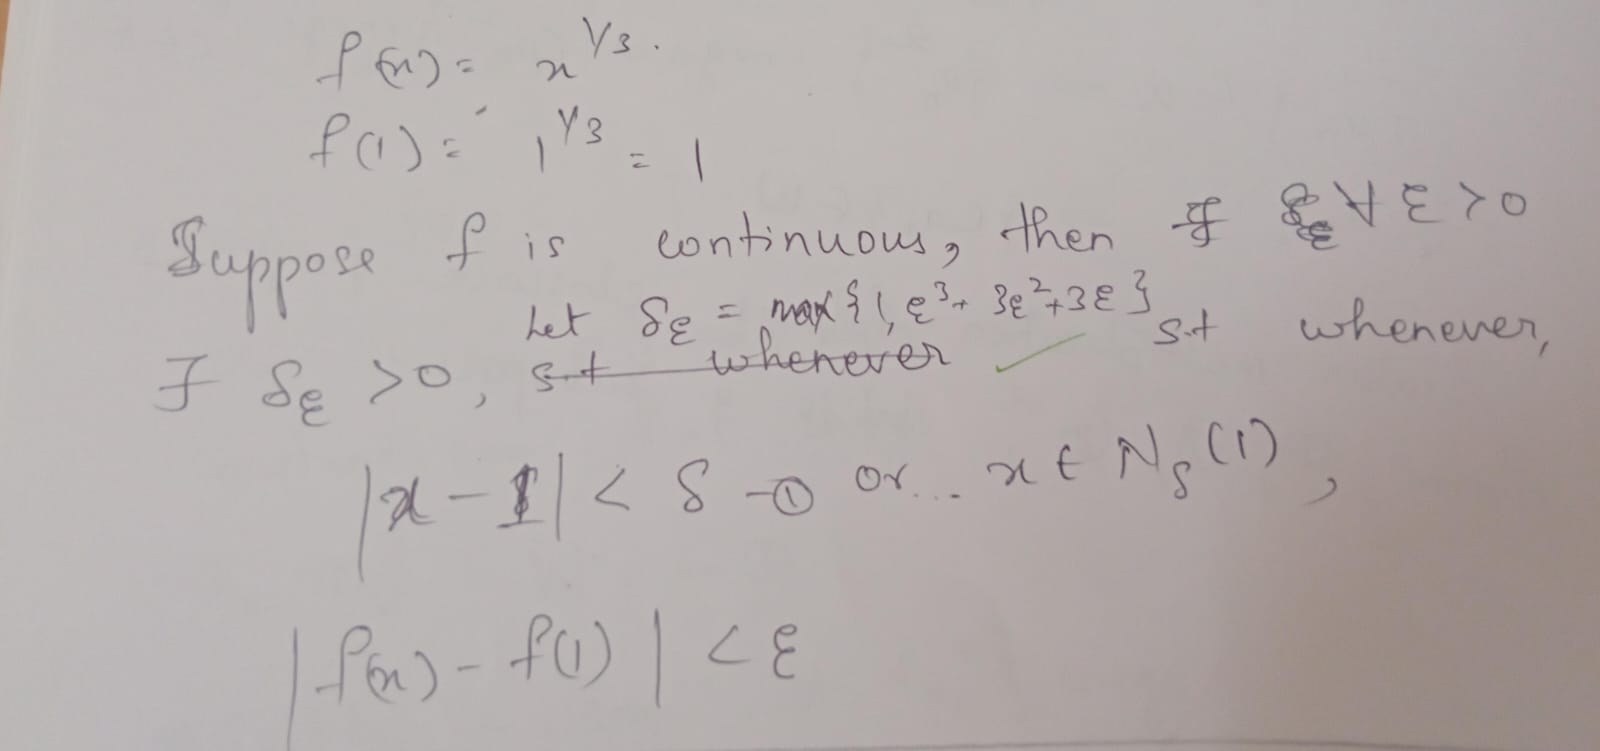 f(x) = x^{1/3}.
f(1) = 1^{1/3} = 1
Suppose f is continuous, then ∀ ε > 0
Let δ_ε = max{1, ε³ + 3ε² + 3ε} s.t whenever,
∃ δ_ε > 0, s.t whenever ✓
|x - 1| < δ -① or... x ∈ N_δ(1),
|f(x) - f(1)| < ε